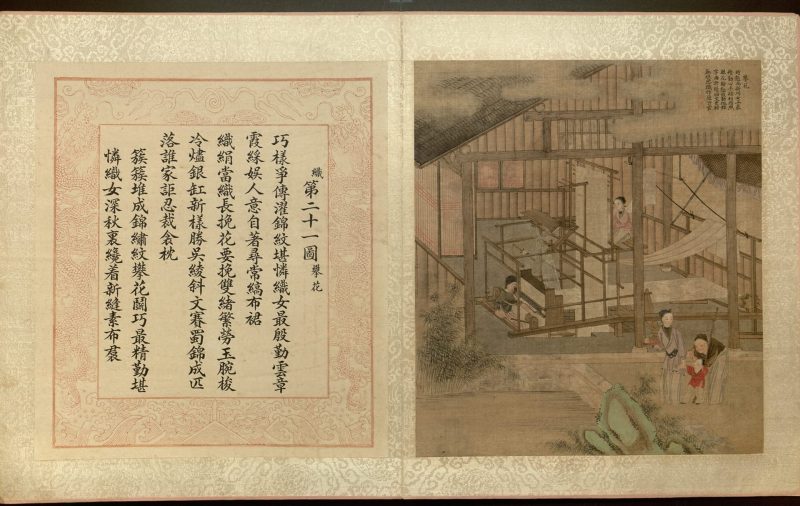 織第二十一圖攀花
巧樣爭傳濯錦紋堪憐織女最殷勤雲章
霞綵娛人意自著尋常縞布裙
織絹當織長挽花要挽雙緒繁勞玉腕梭
冷燼銀缸新樣勝吳綾斜文賽蜀錦成匹
落誰家詎忍裁衾枕
簇簇堆成錦繡紋攀花鬬巧最精勤堪
憐織女深秋裏纔着新縫素布裠
攀花